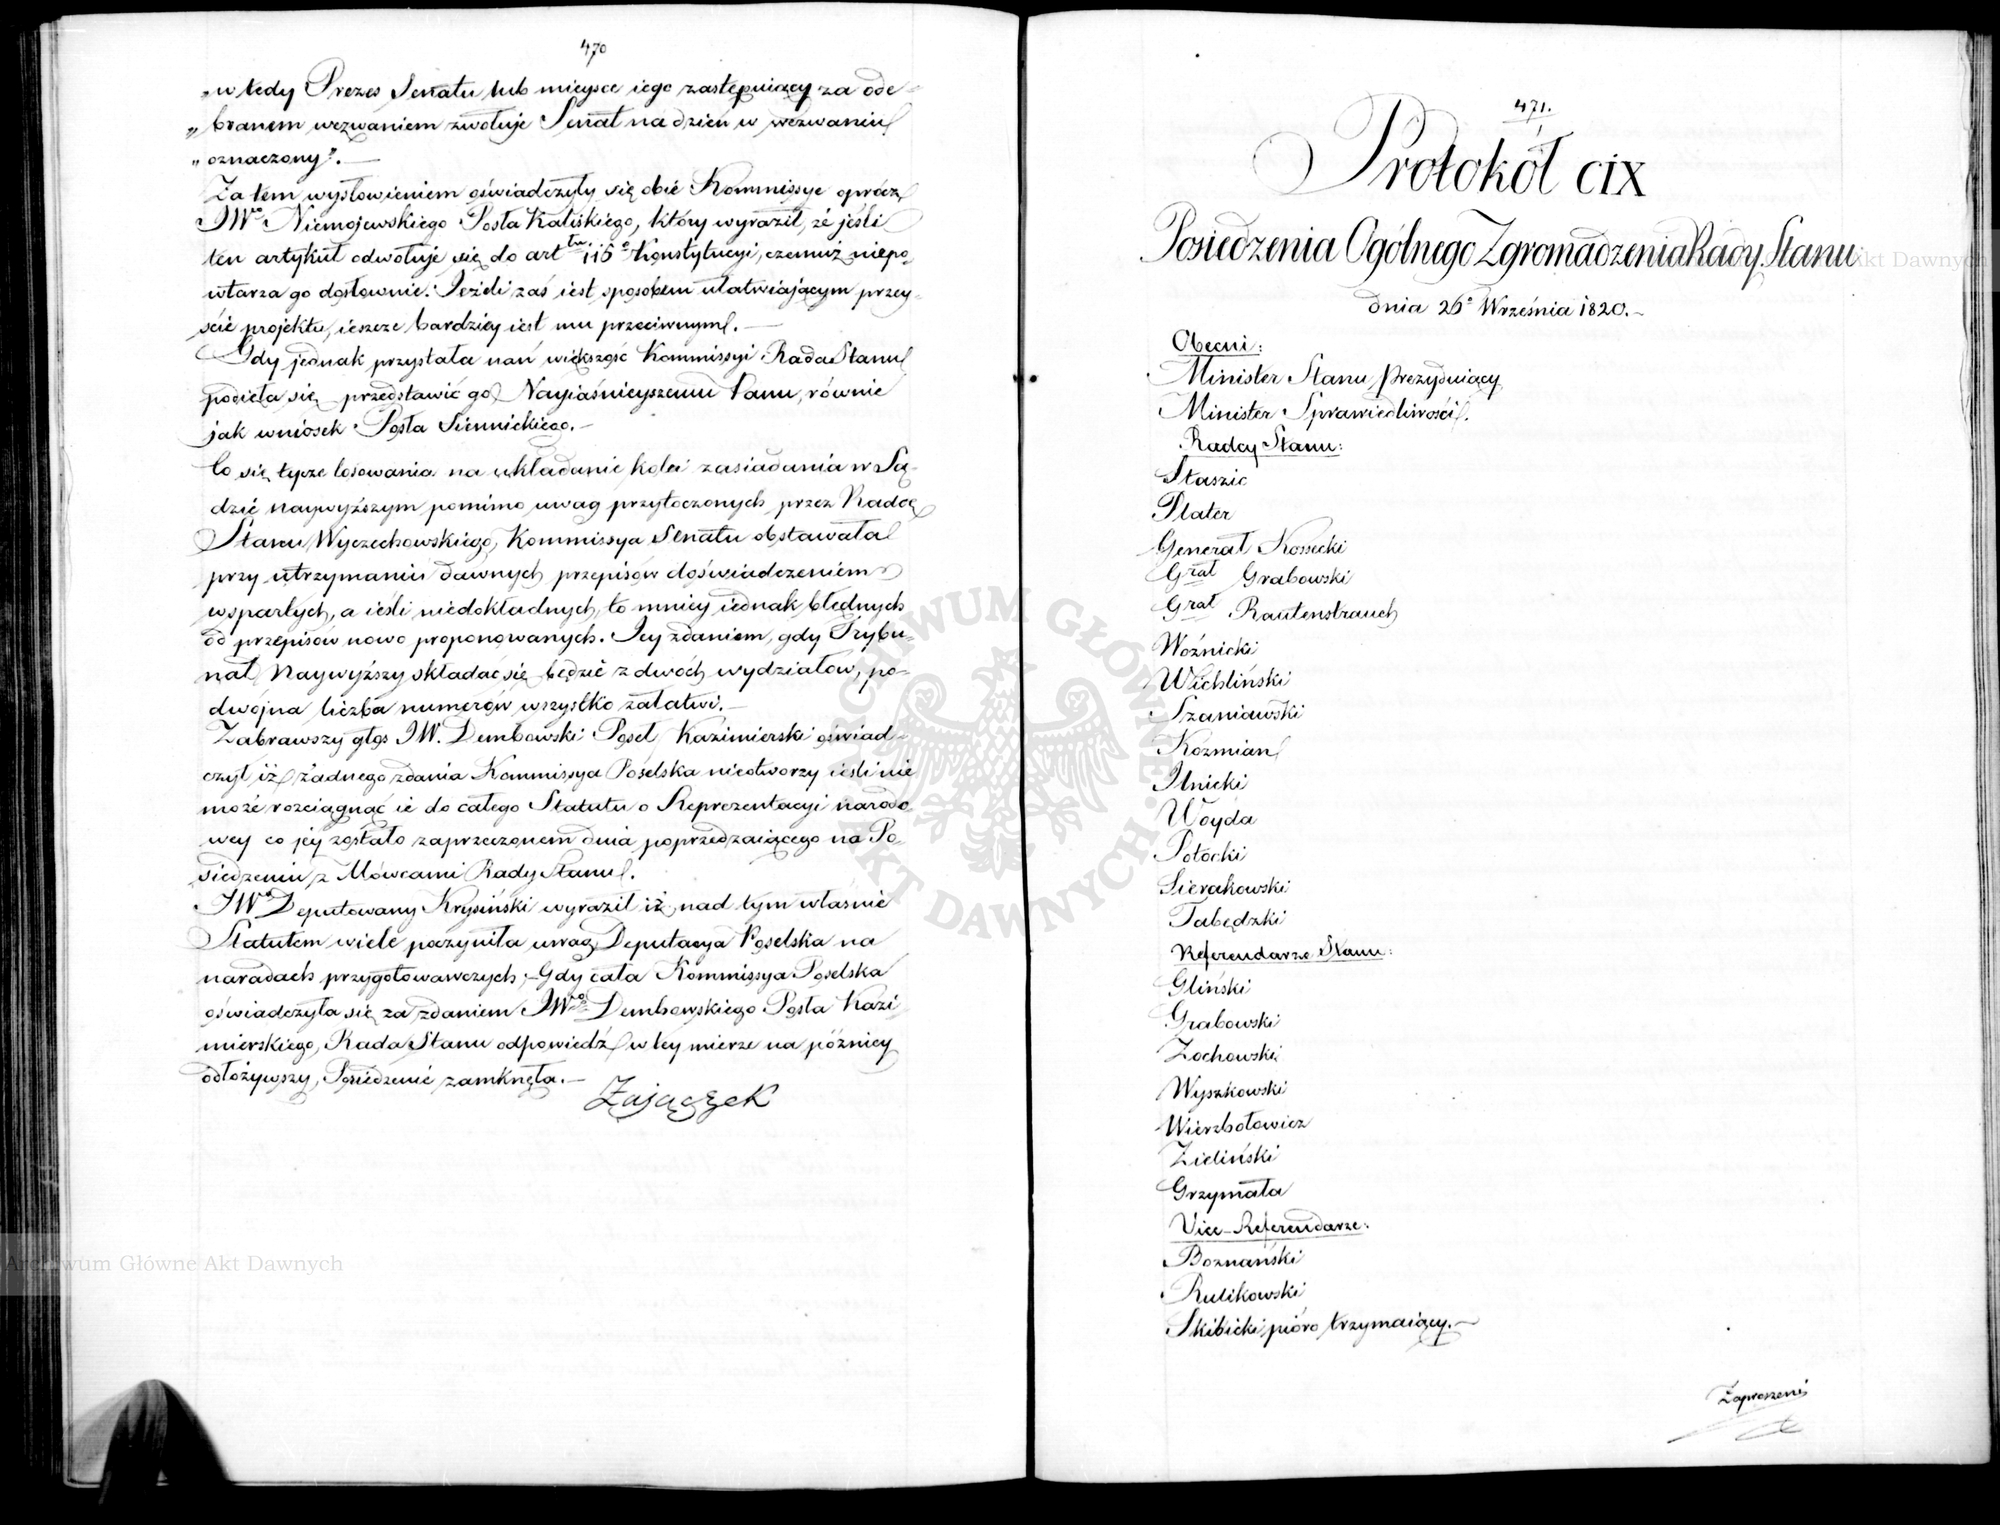 470
„wtedy Prezes Senatu lub mieysce iego zastępuiący za ode-
„branem wezwaniem zwołuje Senat na dzień w wezwaniu
„oznaczony”.—
Za tem wysłowieniem oświadczyły się obie Kommissye oprócz
JWo Niemojewskiego Posła Kaliskiego, który wyraził, że jeśli
ten artykuł odwołuje się do arttu 116o Konstytucyi, czemuż niepo-
wtarza go dosłownie. Jeżeli zaś iest sposobem ułatwiającym przey-
ście projektu, ieszcze bardziey iest mu przeciwnym.—
Gdy jednak przystała nań większość Kommissyi Rada Stanu
podięła się przedstawić go Nayiaśnieyszemu Panu, równie
jak wniosek Posła Siennickiego.—
Co się tycze losowania na układanie kolei zasiadania w Są-
dzie Naywyższym pomimo uwag przytoczonych przez Radcę
Stanu Wyczechowskiego, Kommissya Senatu obstawała
przy utrzymaniu dawnych przepisów doświadczeniem
wspartych, a ieśli niedokładnych, to mniey iednak błędnych
od przepisów nowo proponowanych. Jey zdaniem, gdy Trybu-
nał Naywyższy składać się będzie z dwóch wydziałów, po-
dwójna liczba numerów wszystko załatwi.—
Zabrawszy głos JW. Dembowski Poseł Kazimierski oświad-
czył iż żadnego zdania Kommissya Poselska nieotworzy ieśli nie
może rozciągnąć ie do całego Statutu o Reprezentacyi narodo-
wey co jey zostało zaprzeczonem dnia poprzedzaiącego na Po-
siedzeniu z Mówcami Rady Stanu.
JWo Deputowany Krysiński wyraził iż nad tym właśnie
Statutem wiele poczyniła uwag Deputacya Poselska na
naradach przygotowawczych;—Gdy cała Kommissya Poselska
oświadczyła się za zdaniem JWo Dembowskiego Posła Kazi-
mierskiego, Rada Stanu odpowiedź w tey mierze na późniey
odłożywszy, Posiedzenie zamknęła.—
Zajączek
471.
Protokół CIX
Posiedzenia Ogólnego Zgromadzenia Rady Stanu
dnia 26o Września 1820.—
Obecni:
Minister Stanu Prezyduiący
Minister Sprawiedliwości.
Radcy Stanu:
Staszic
Plater
Generał Kossecki
Grał Grabowski
Grał Rautenstrauch
Woźnicki
Wichliński
Szaniawski
Koźmian
Ilnicki
Woyda
Potocki
Sierakowski
Tabędzki
Referendarze Stanu:
Gliński
Grabowski
Zochowski
Wyszkowski
Wierzbołowicz
Zieliński
Grzymała
Vice-Referendarze:
Boznański
Rulikowski
Skibicki pióro trzymaiący.—
Zaproszeni
ARCHIWUM GŁÓWNE AKT DAWNYCH
Archiwum Główne Akt Dawnych
Akt Dawnych